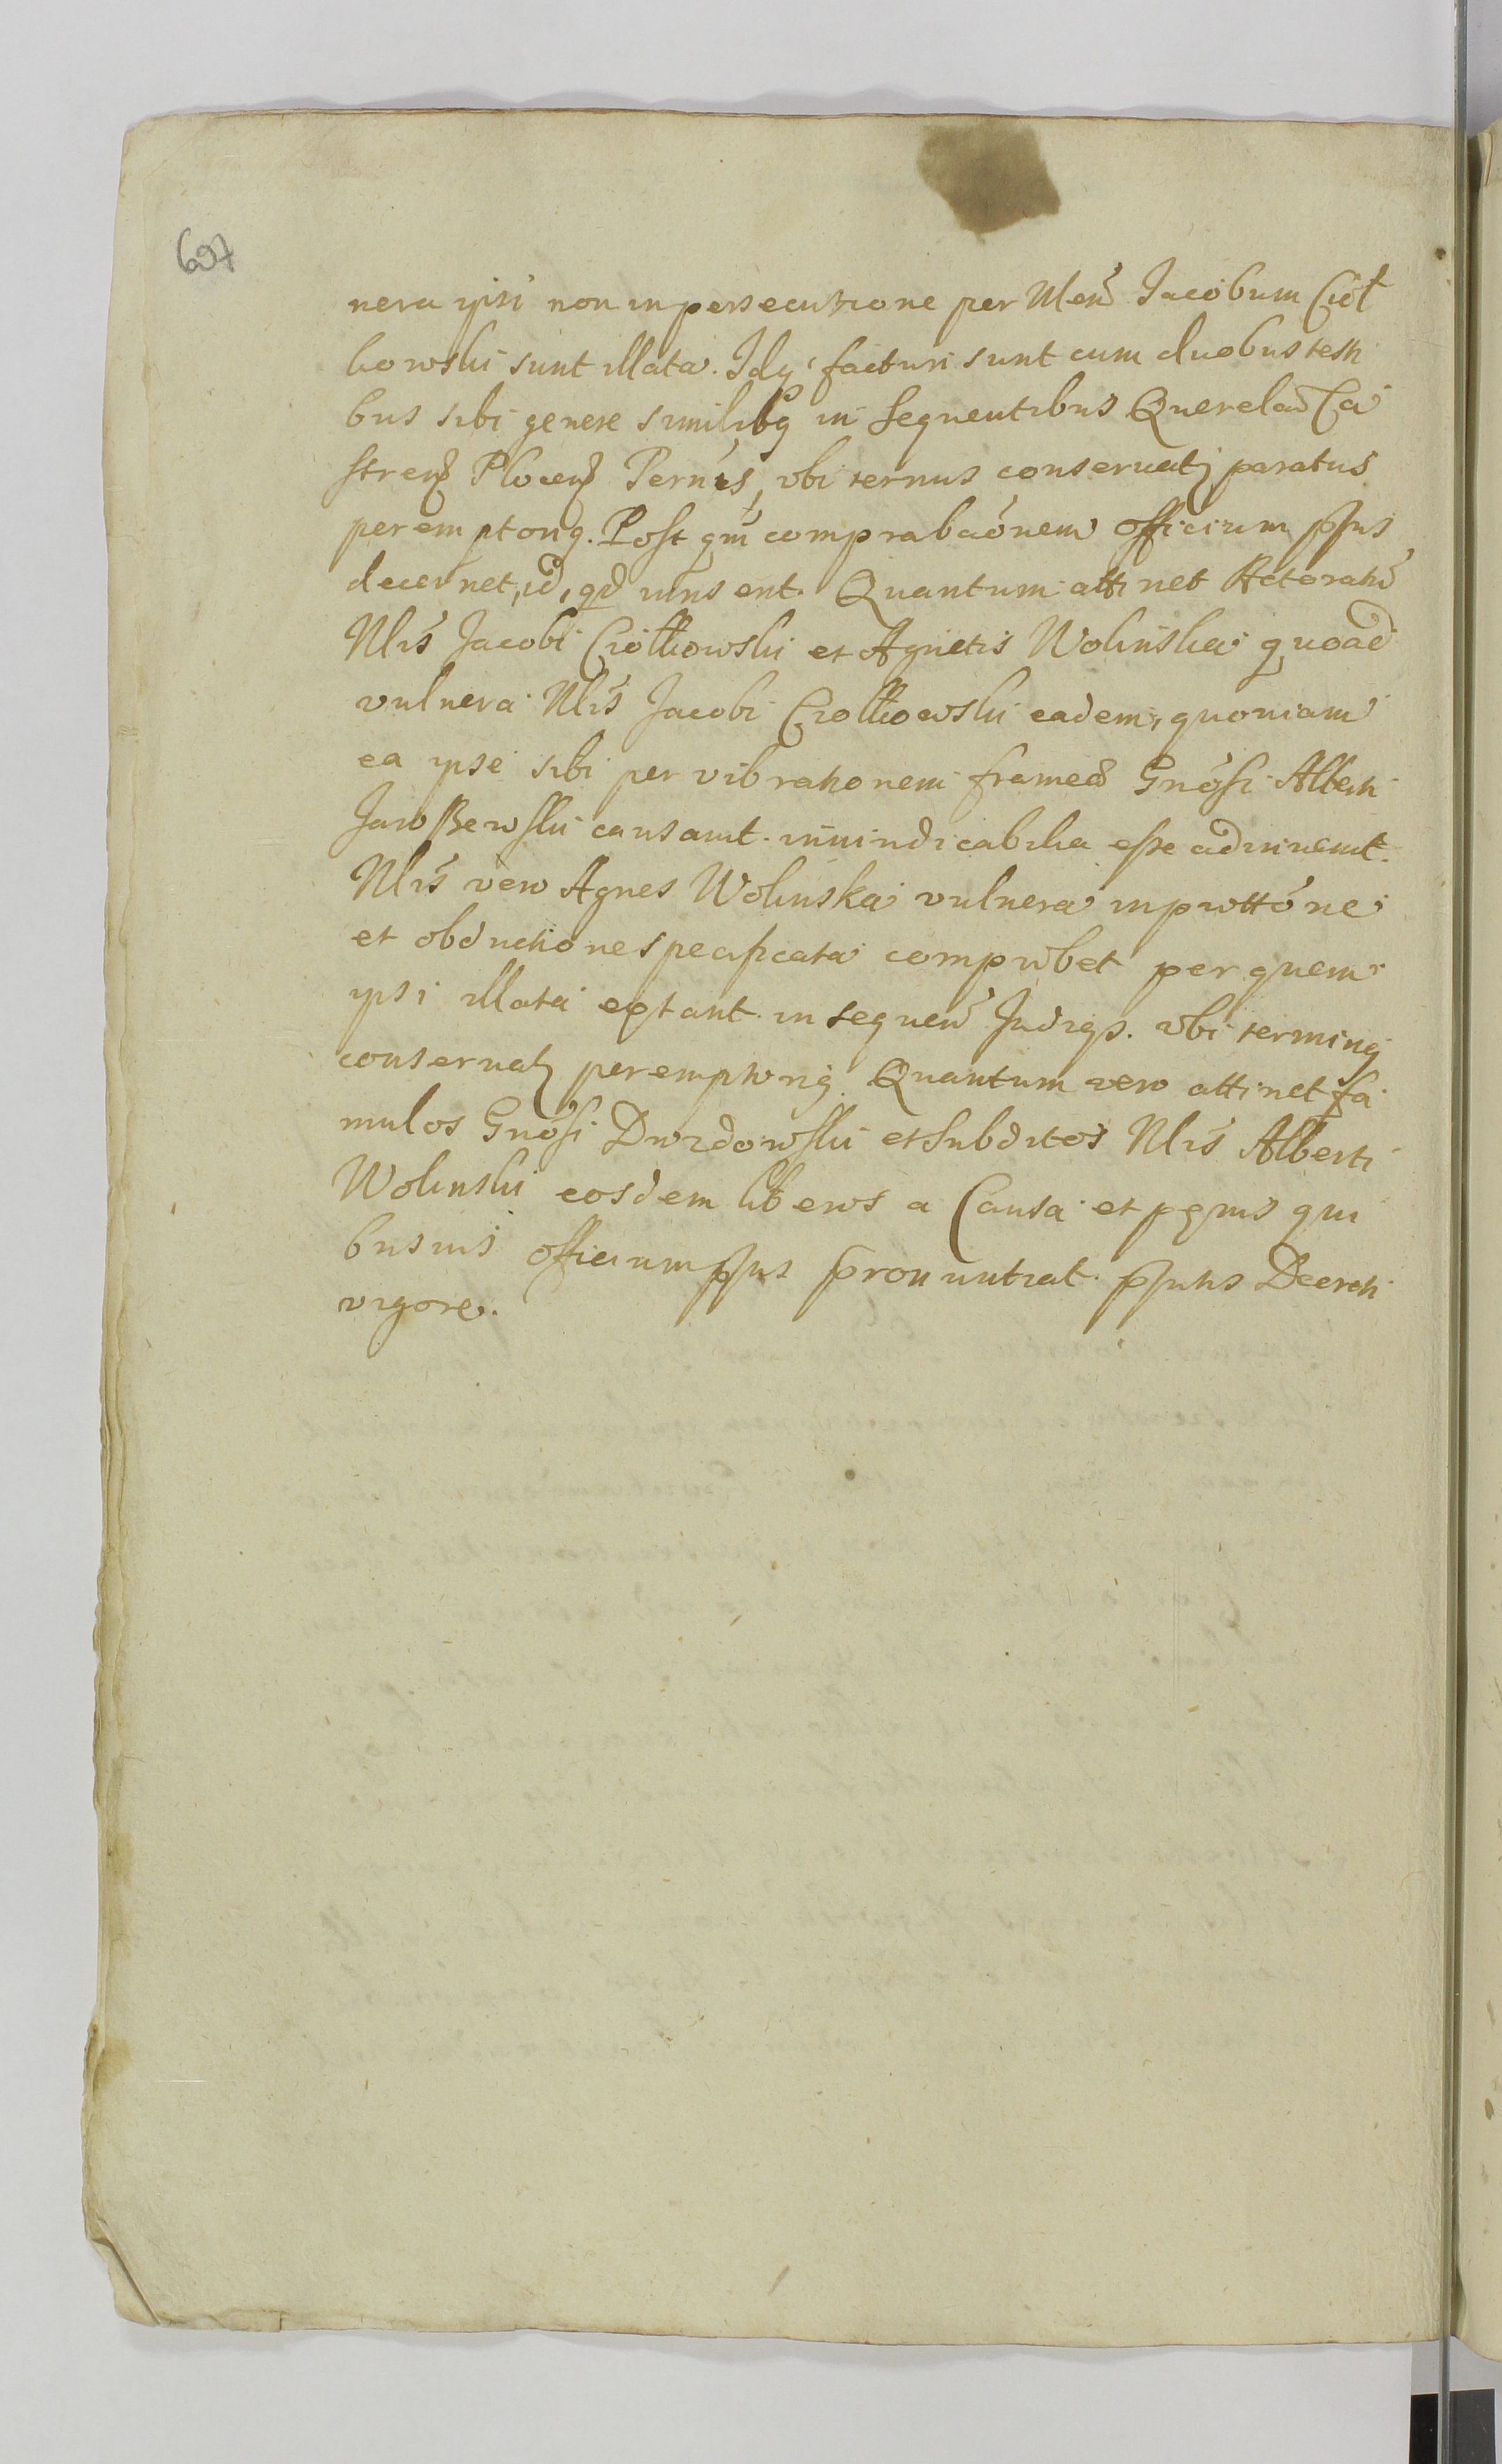 697
nera ipsi non in persecutione per Nlem Jacobum Cioł
kowski sunt illata. Idq facturi sunt cum duobus testi
bus sibi genere similibq in sequentibus Querelar Ca
stren Plocen Ternis, vbi ternus conservatj paratus
peremptoriq. Post qm comprobaonem officium pns
decernet, id, qd iuris erit. Quantum attinet Actoratu
Nlis Jacobi Ciołkowski et Agnetis Wolinska quoad
vulnera Nlis Jacobi Ciołkowski eadem, quoniam
ea ipse sibi per vibrationem framea Gnosi Alberti
Jaroszewski causavit. invindicabilia esse adinvenit.
Nlis vero Agnes Wolinska vulnera in prottone
et obductione specificata comprobet per quem
ipsi illata extant in sequen Judiys. vbi terminq
conservatj peremptoriq. Quantum vero attinet fa
mulos Gnosi Drozdowski et subditos Nlis Alberti
Wolinski eosdem liberos a Causa et pnis qui
busvis officium pns pronuntiat. pntis Decreti
vigore.